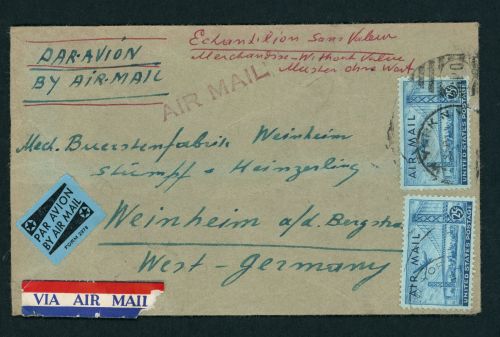 PAR-AVION
BY AIR-MAIL
Echantillon sans Valeur
Merchandise-Without Value
Muster ohne Wert
AIR MAIL
Mech. Buerstenfabrik Weinheim
Stumpf + Heinzerling
Weinheim a/d. Bergstra
West-Germany
PAR AVION
BY AIR MAIL
FORM 2978
VIA AIR MAIL
AIR MAIL
25¢
UNITED STATES POSTAGE
AIR MAIL
25¢
UNITED STATES POSTAGE